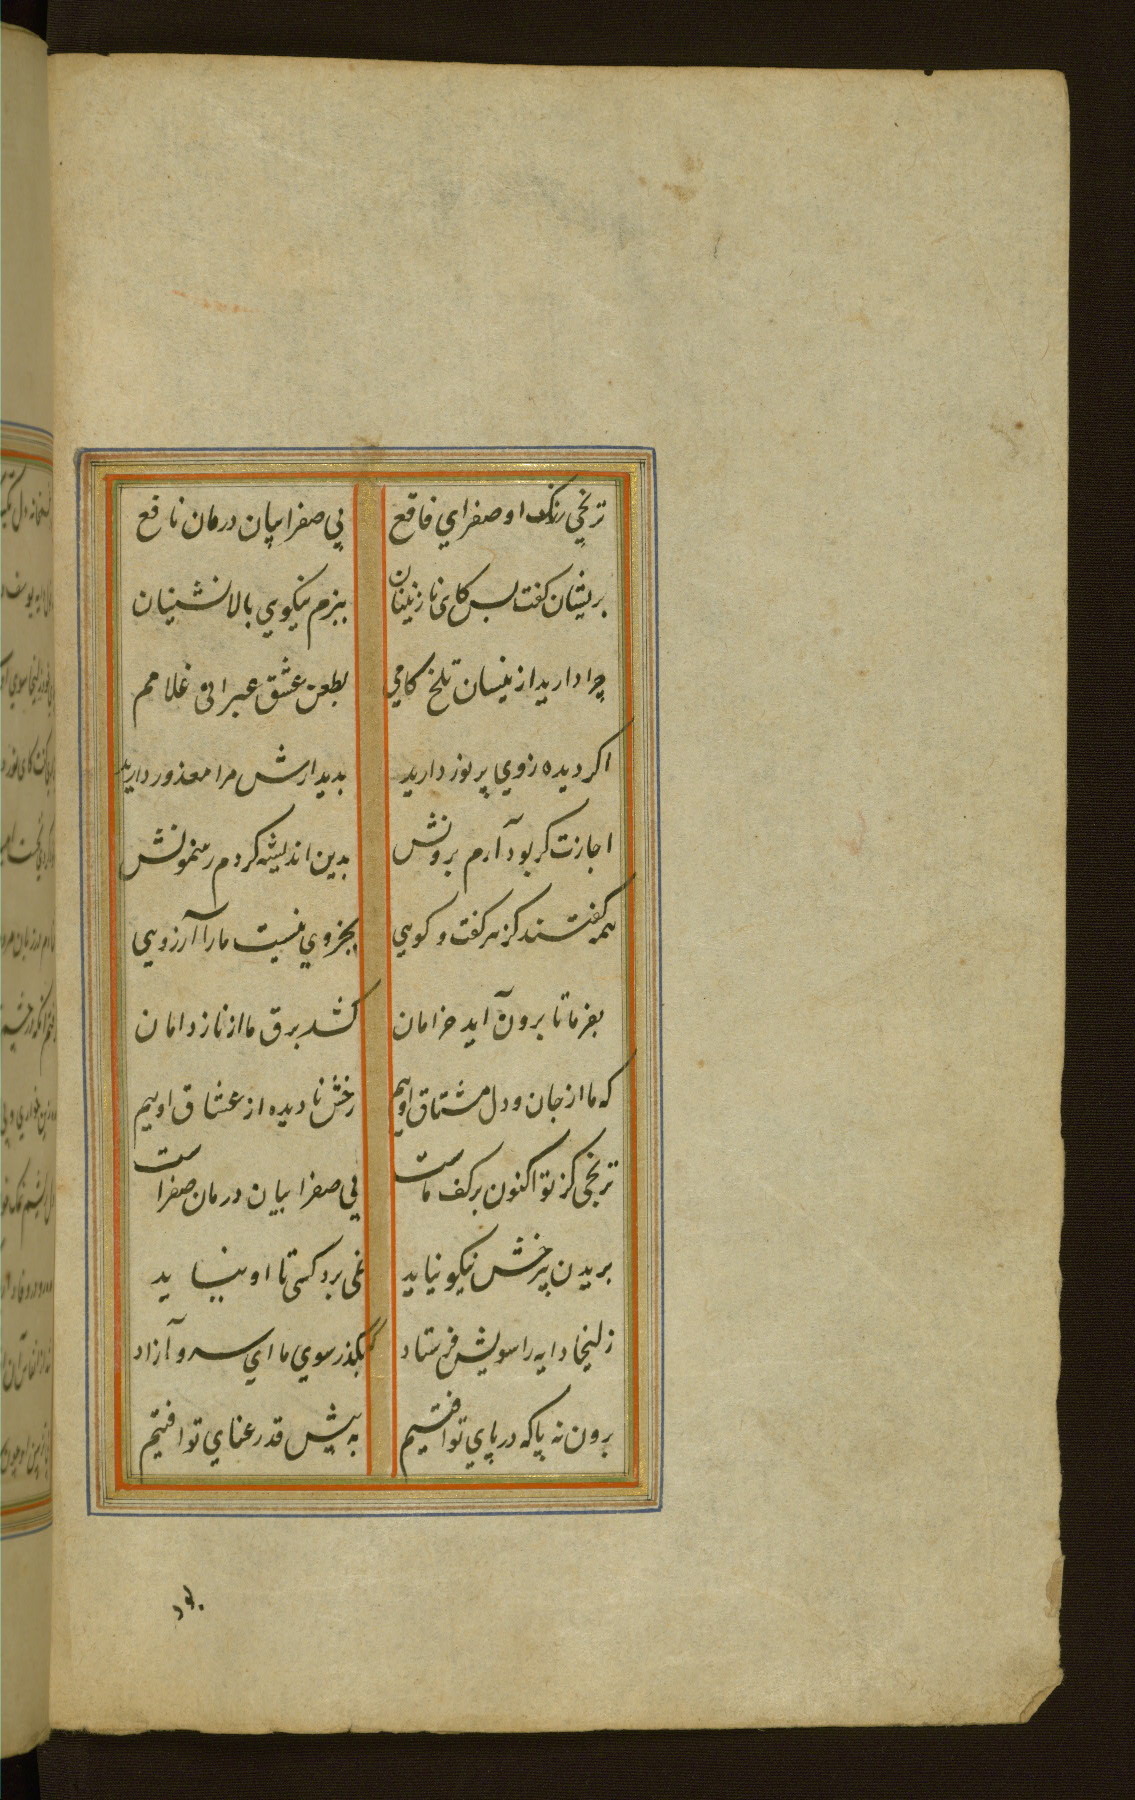 ترنجي رنک او صفراي فاقع پي صفراييان درمان نافع
بريشان کفت پس کاي نازنينان ببزم نيکوي بالانشينان
چرا داريد ازينسان تلخ کامي بطعن عشق عبراني غلامم
اکر ديده زوي پر نور داريد بديدارش مرا معذور داريد
اجازت کر بود آرم برونش بدين انديشه کردم رهنمونش
همه کفتند کز هر کفت و کويي بجز وي نيست مارا آرزويي
بفرما تا برون آيد خرامان کشد بر فرق ما از ناز دامان
که ما از جان و دل مشتاق اوييم رخش ناديده از عشاق اوييم
ترنجي کز تو اکنون بر کف ماست پي صفراييان درمان صفراست
بريدن بي رخش نيکو نيايد نمي برد کسي تا او بنيايد
زليخا دايه را سويش فرستاد که بکذر سوي ما اي سرو آزاد
برون نه پا که در پاي تو افتيم به پيش قد رعناي تو افتيم
بود